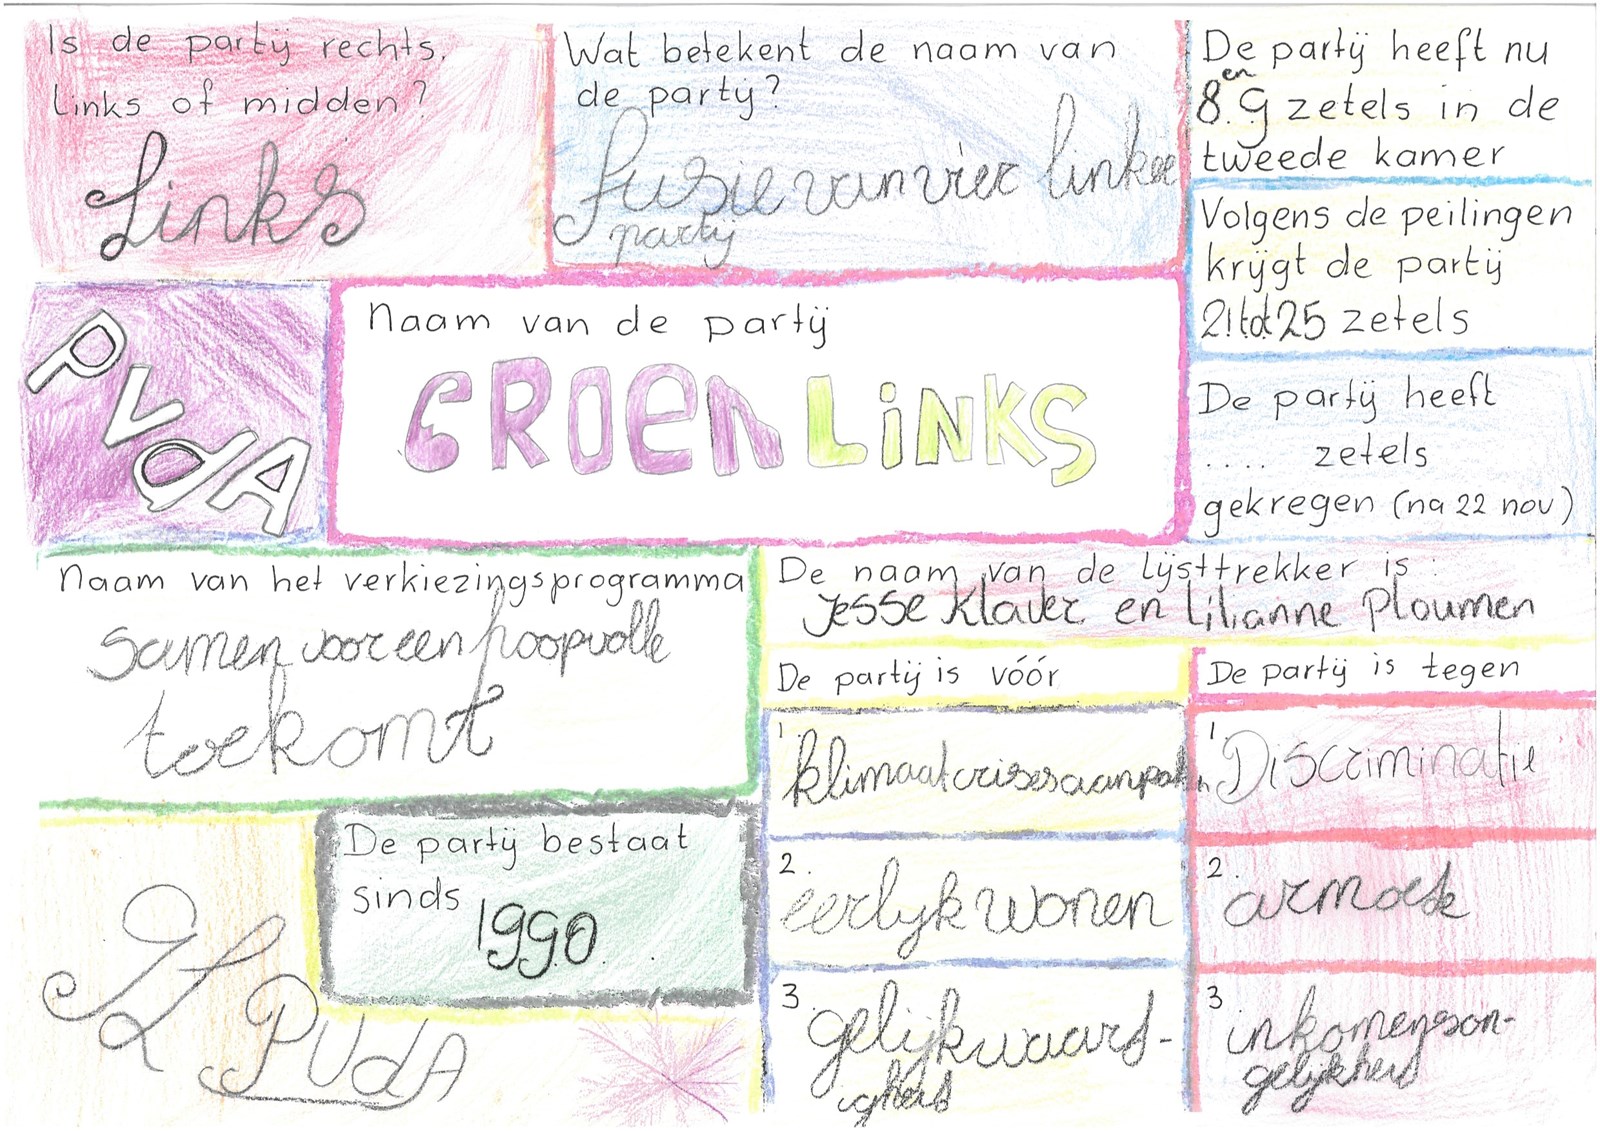 Is de partij rechts,
links of midden?
Links
Wat betekent de naam van
de partij?
fusie van vier linkse
partij
De partij heeft nu
8 en 9 zetels in de
tweede kamer
Volgens de peilingen
krijgt de partij
21 tot 25 zetels
De partij heeft
.... zetels
gekregen (na 22 nov)
PvdA
Naam van de partij
GROEN LINKS
Naam van het verkiezingsprogramma
samen voor een hoopvolle
toekomt
De naam van de lijsttrekker is:
Jesse Klaver en Lilianne Ploumen
De partij is vóór
1. klimaatcrisesaanpakken
2. eerlijk wonen
3. gelijkwaard-
igheid
De partij is tegen
1. Discriminatie
2. armoede
3 inkomenson-
gelijkheid
De partij bestaat
sinds 1990
GL
PVdA